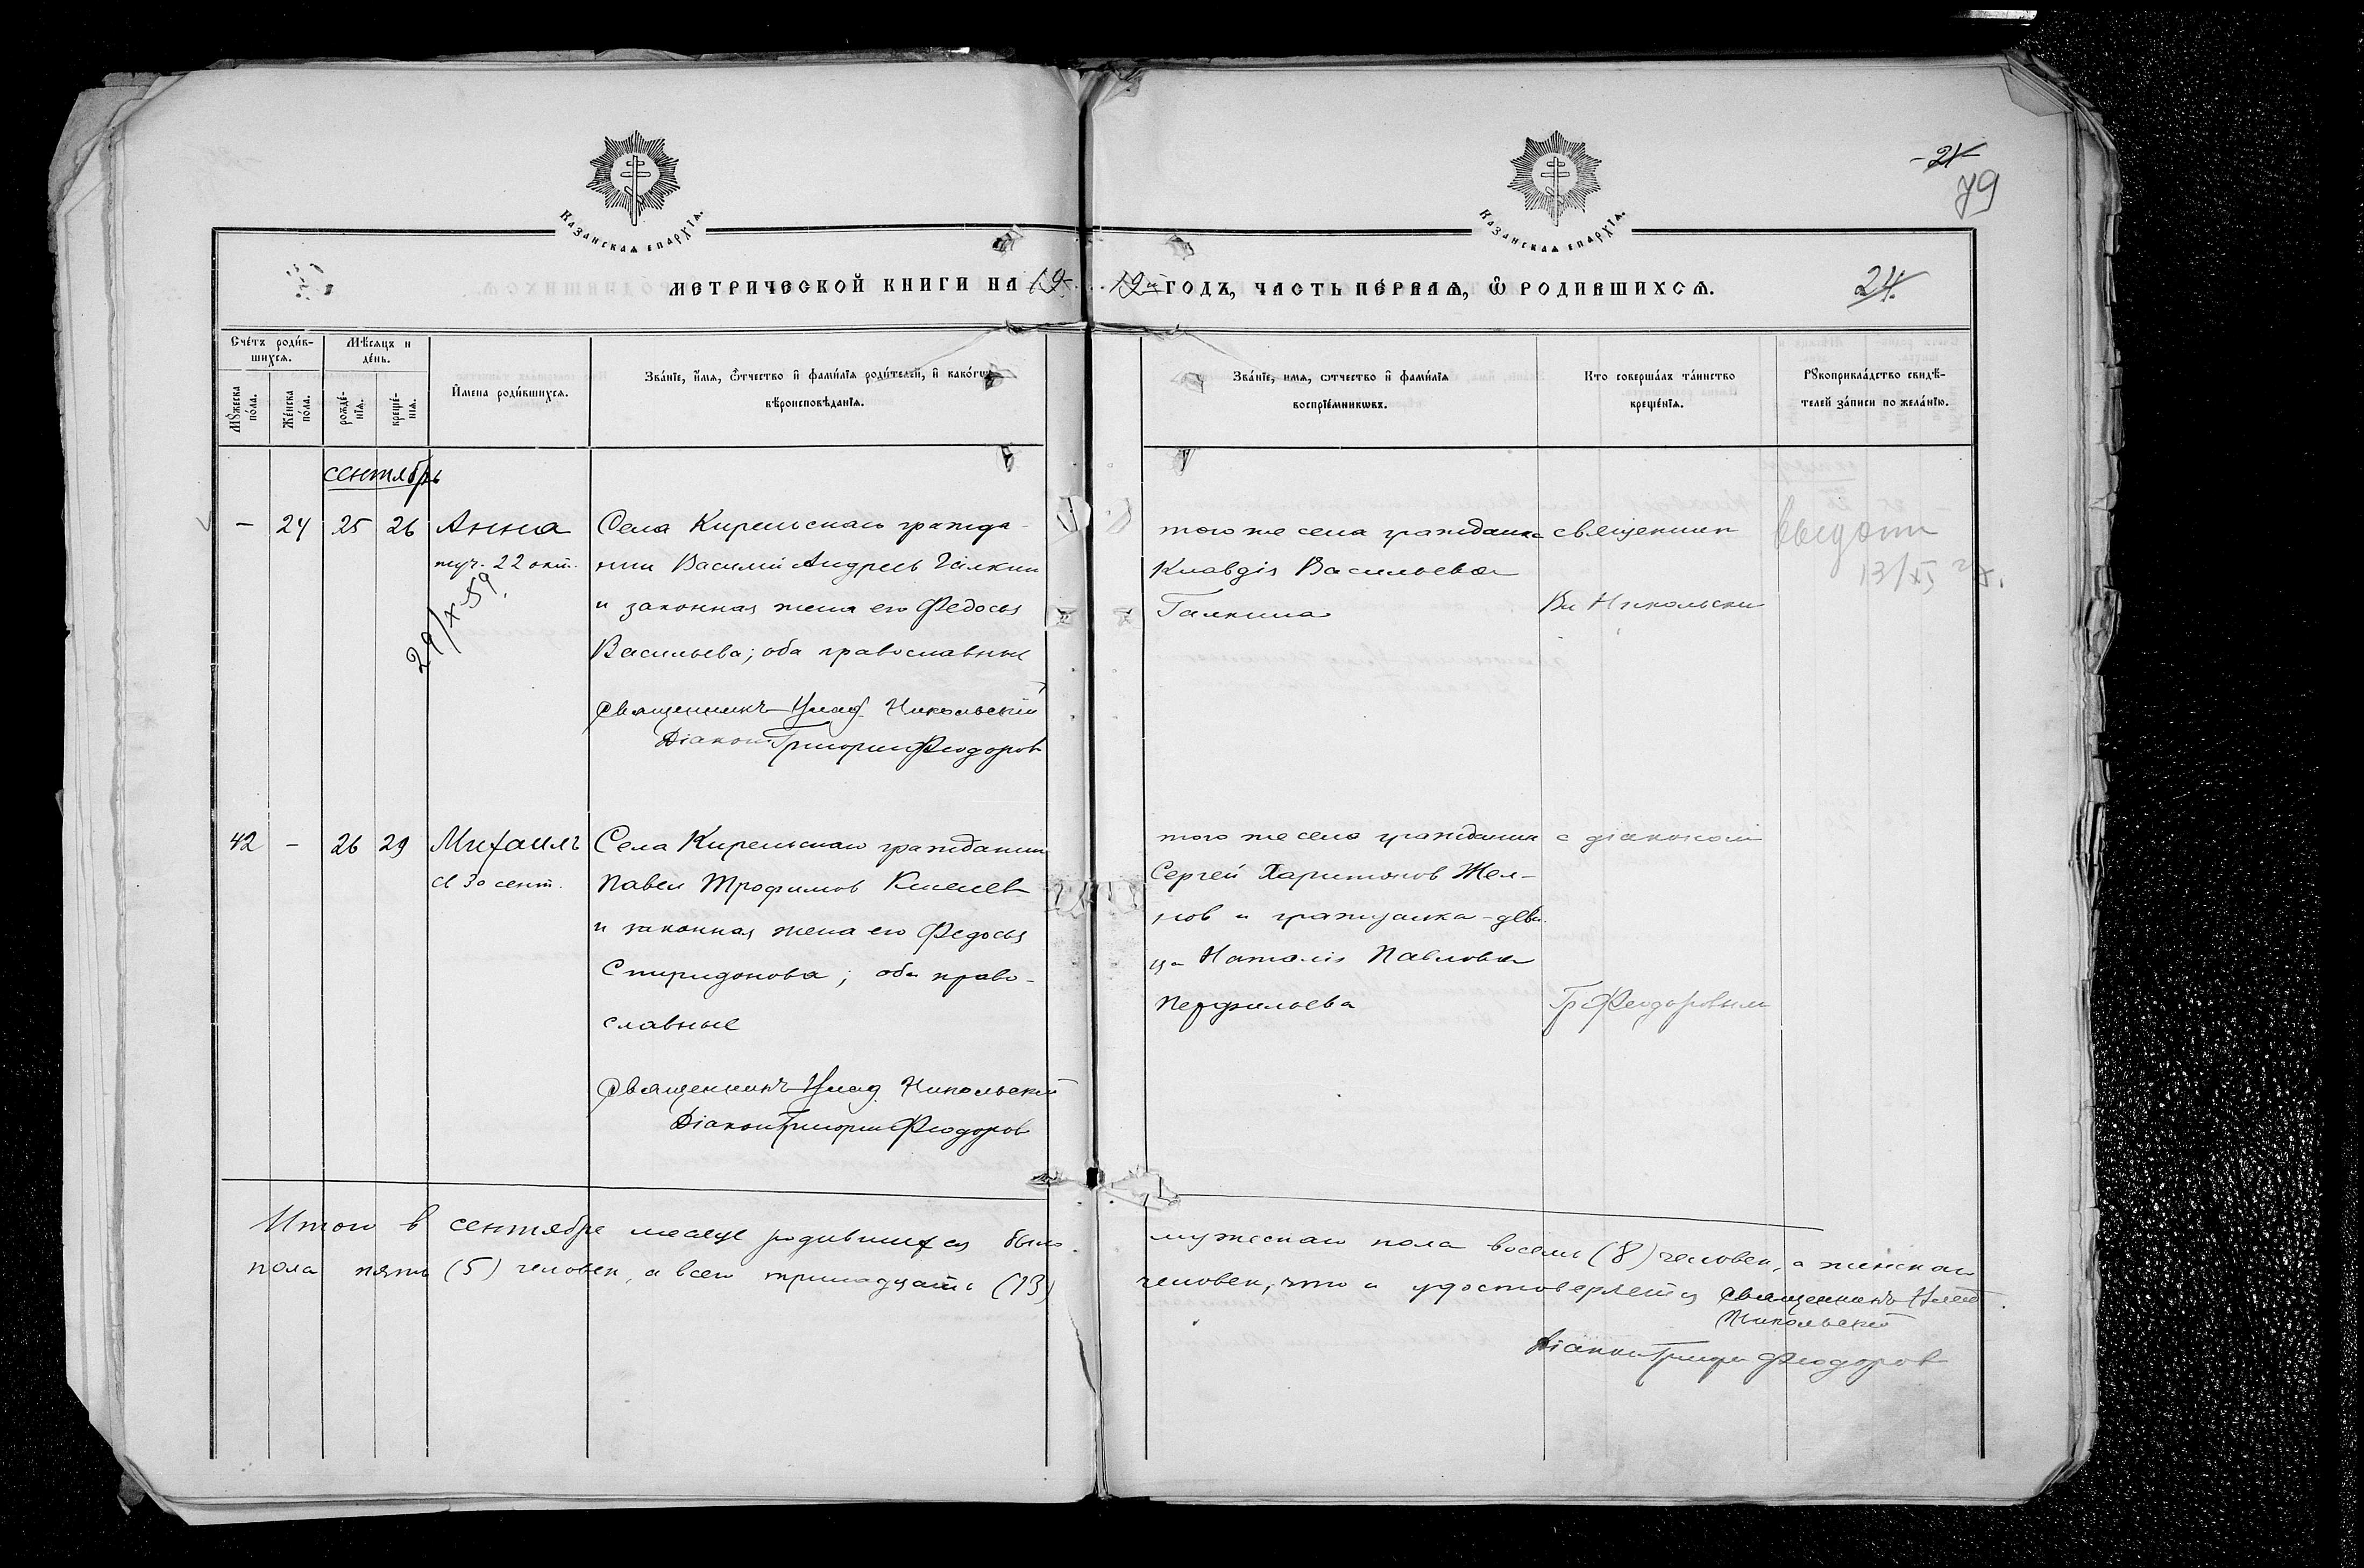 Казанская епархїя.
Казанская епархїя.
- 21 -
79
МЕТРИЧЕСКОЙ КНИГИ НА 19
19 й ГОДЪ, ЧАСТЬ ПЕ́РВАЯ, Ѿ РОДИВШИХСЯ.
24.
Сче́тъ роди́в-
шихся.
Мѣ́сяцъ и
де́нь.
Мꙋ́жеска
по́ла.
Же́нска
по́ла.
рожде́-
нїя.
креще́-
нїя.
И҆мена роди́вшихся.
Зва́нїе, и҆́мя, ѻ҆́тчество и҆ фами́лїя роди́телей, и҆ како́гѡ
вѣроисповѣ́данїя.
Зва́нїе, имя, ѻтчество и҆ фами́лїя
воспрїе́мникѡвъ.
Кто соверша́лъ та́инство
креще́нїя.
Рꙋкоприкла́дство свидѣ́-
телей за́писи по жела́нїю.
сентябрь
- 24 25 26 Анна
муч. 22 окт.
29/X-59.
Села Кирельскаго гражда-
нин Василий Андреев Галкин
и законная жена его Федосья
Васильева; оба православные
Священникъ Влад. Никольский
Діакон Григорий Феодоров
того же села гражданка
Клавдія Васильева
Галкина
священник
Вл Никольский
выдан
13/XI
42 - 26 29 Михаилъ
св 30 сент.
Села Кирельскаго гражданин
Павел Трофимов Киселев
и законная жена его Федосья
Спиридонова; оба право-
славные
Священникъ Влад. Никольский
Діакон Григорий Феодоров
того же села гражданин
Сергей Харитонов Жел-
нов и гражданка-деви
ца Наталія Павлова
Перфильева
с діаконом
Гр Феодоровым
Итого в сентябре месяце родившихся было мужескаго пола восемь (8) человек, а женскаго
пола пять (5) человек, а всего тринадцать (13) человек, что и удостоверяется Священникъ Влад
Никольский
Діакон Григорий Феодоров